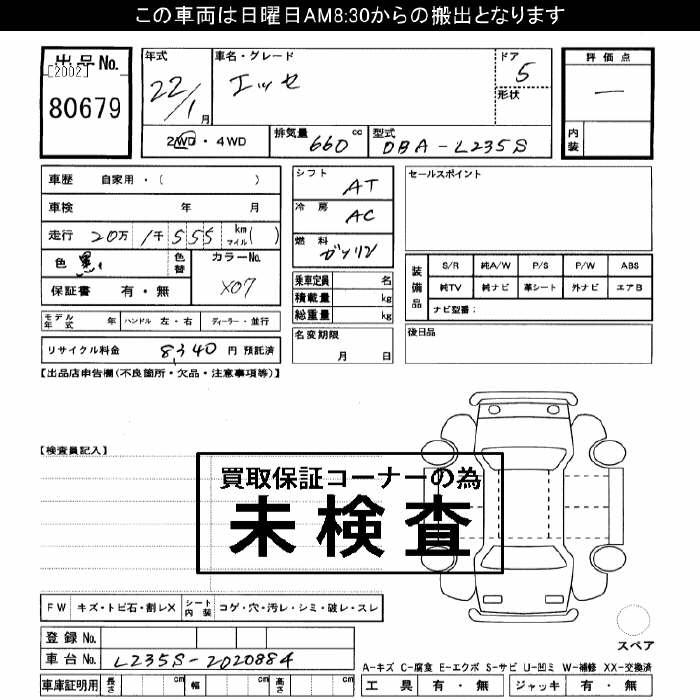 この車両は日曜日AM8:30からの搬出となります
出品No.
[2002]
80679
年式
22/1月
車名・グレード
エッセ
ドア
5
形状
評価点
―
内装
2WD・4WD
排気量 660 cc
型式 DBA-L235S
車歴 自家用・( )
車検 年 月
走行 20万1千555 km マイル( )
色 黒
色替
カラーNo.
X07
保証書 有・無
モデル年式 年
ハンドル 左・右
ディーラー・並行
リサイクル料金 8,340 円 預託済
シフト
AT
冷房
AC
燃料
ガソリン
乗車定員 名
積載量 kg
総重量 kg
名変期限
月 日
セールスポイント
装備品
S/R 純A/W P/S P/W ABS
純TV 純ナビ 革シート 外ナビ エアB
ナビ型番:
後日品
【出品店申告欄(不良箇所・欠品・注意事項等)】
【検査員記入】
買取保証コーナーの為
未検査
FW キズ・トビ石・割レX シート内装 コゲ・穴・汚レ・シミ・破レ・スレ
登録No.
車台No. L235S-2020884
車庫証明用 長さ cm 幅 cm 高さ cm
スペア
A-キズ C-腐食 E-エクボ S-サビ U-凹ミ W-補修 XX-交換済
工具 有・無 ジャッキ 有・無